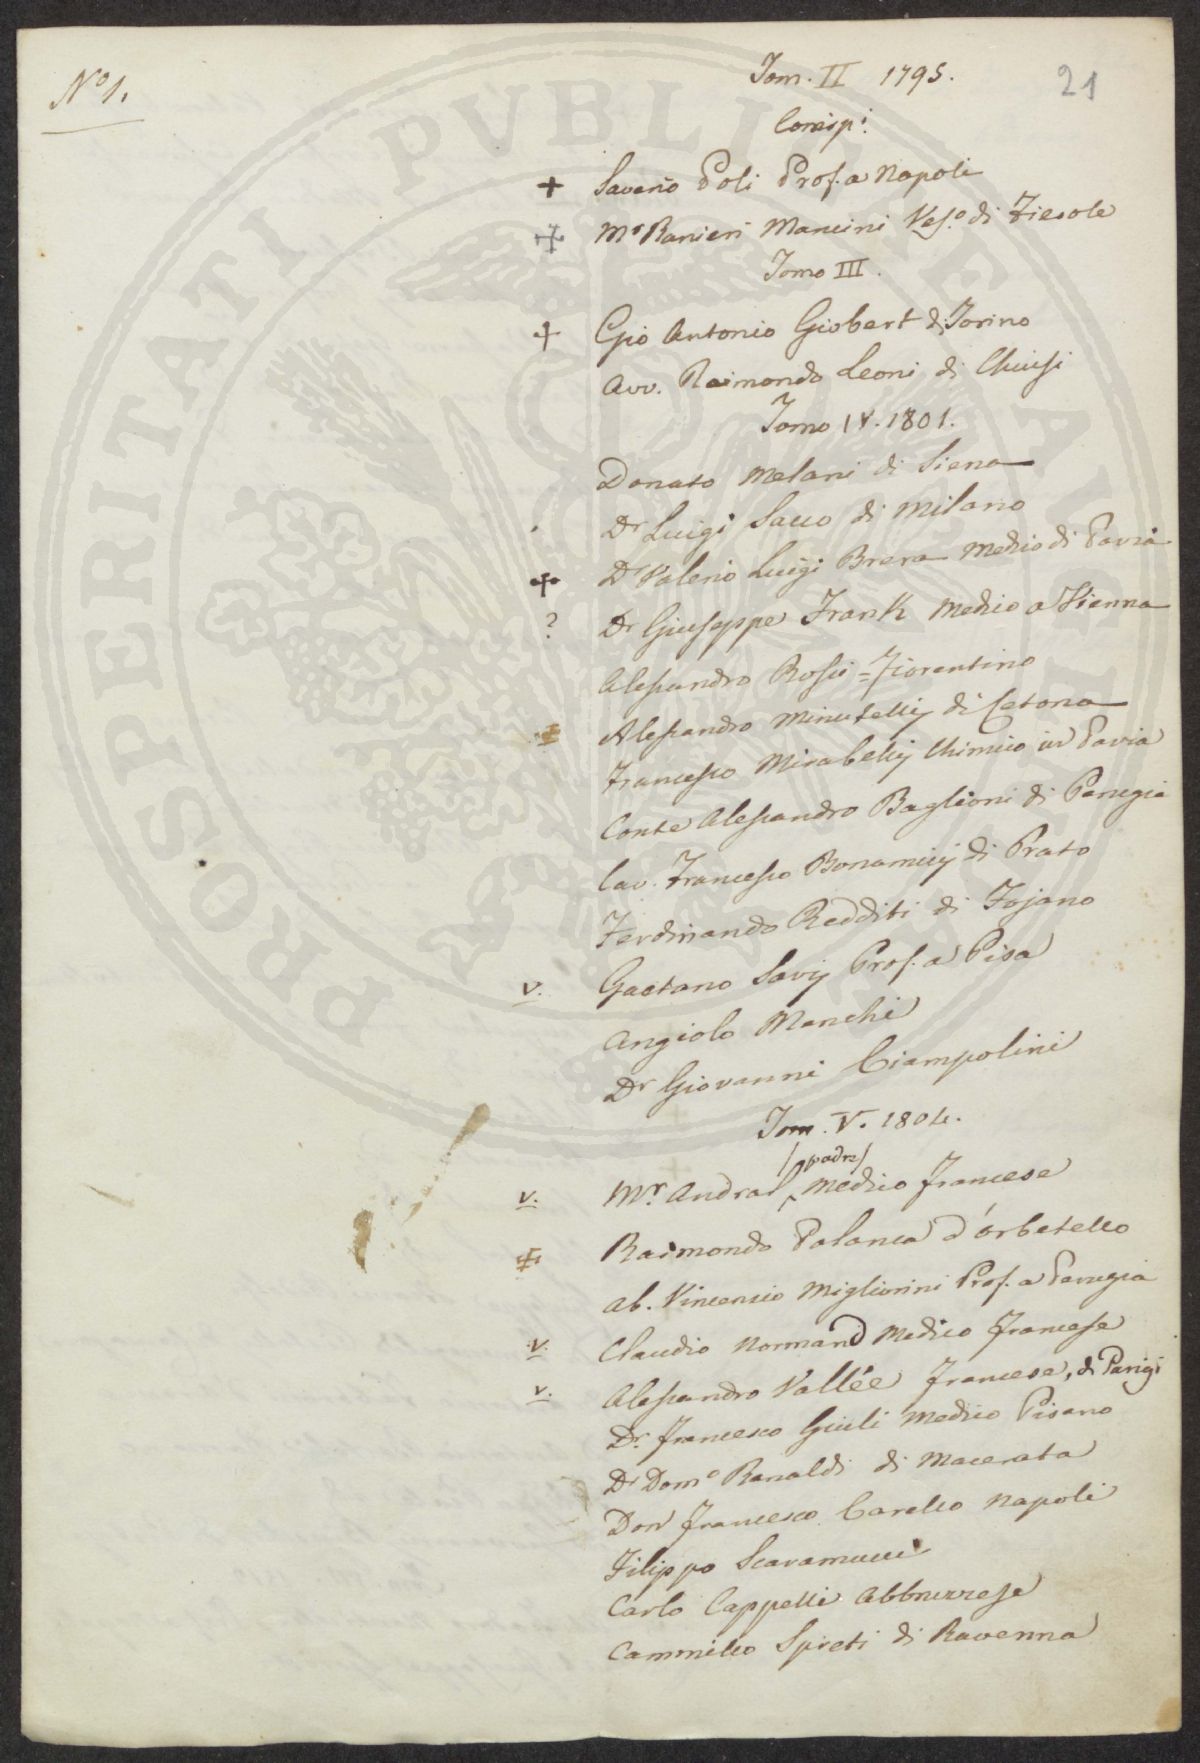 Nº 1.
Tom. II 1795.
21
Corrisp.i
+ Saverio Poli Prof. a Napoli
+ Mr Ranieri Mancini Vesc.o di Fiesole
Tomo III.
+ Gio Antonio Giobert di Torino
Avv. Raimondo Leoni di Chiusi
Tomo IV. 1801.
Donato Melani di Siena
Dr Luigi Sacco di Milano
+ Dr Valerio Luigi Brera Medico di Pavia
? Dr Giuseppe Frank Medico a Vienna
Alessandro Rossi = Fiorentino
+ Alessandro Minutellij di Cetona
Francesco Mirabellij Chimico in Pavia
Conte Alessandro Baglioni di Perugia
Cav. Francesco Bonamicij di Prato
Ferdinando Redditi di Fojano
v. Gaetano Savij Prof. a Pisa
Angiolo Manchi
Dr Giovanni Ciampolini
Tom. V. 1804.
/padre/
v. Mr. Andral Medico Francese
+ Raimondo Palanca d'Orbetello
Ab. Vincenzio Migliorini Prof. a Perugia
v. Claudio Normand Medico Francese
v. Alessandro Vallée Francese, di Parigi
Dr. Francesco Giuli Medico Pisano
Dr Domo Ranaldi di Macerata
Don Francesco Carello Napoli
Filippo Scaramucci
Carlo Cappelli Abbruzzese
Cammillo Spreti di Ravenna
PROSPERITATI PVBLICAE AVGENDAE